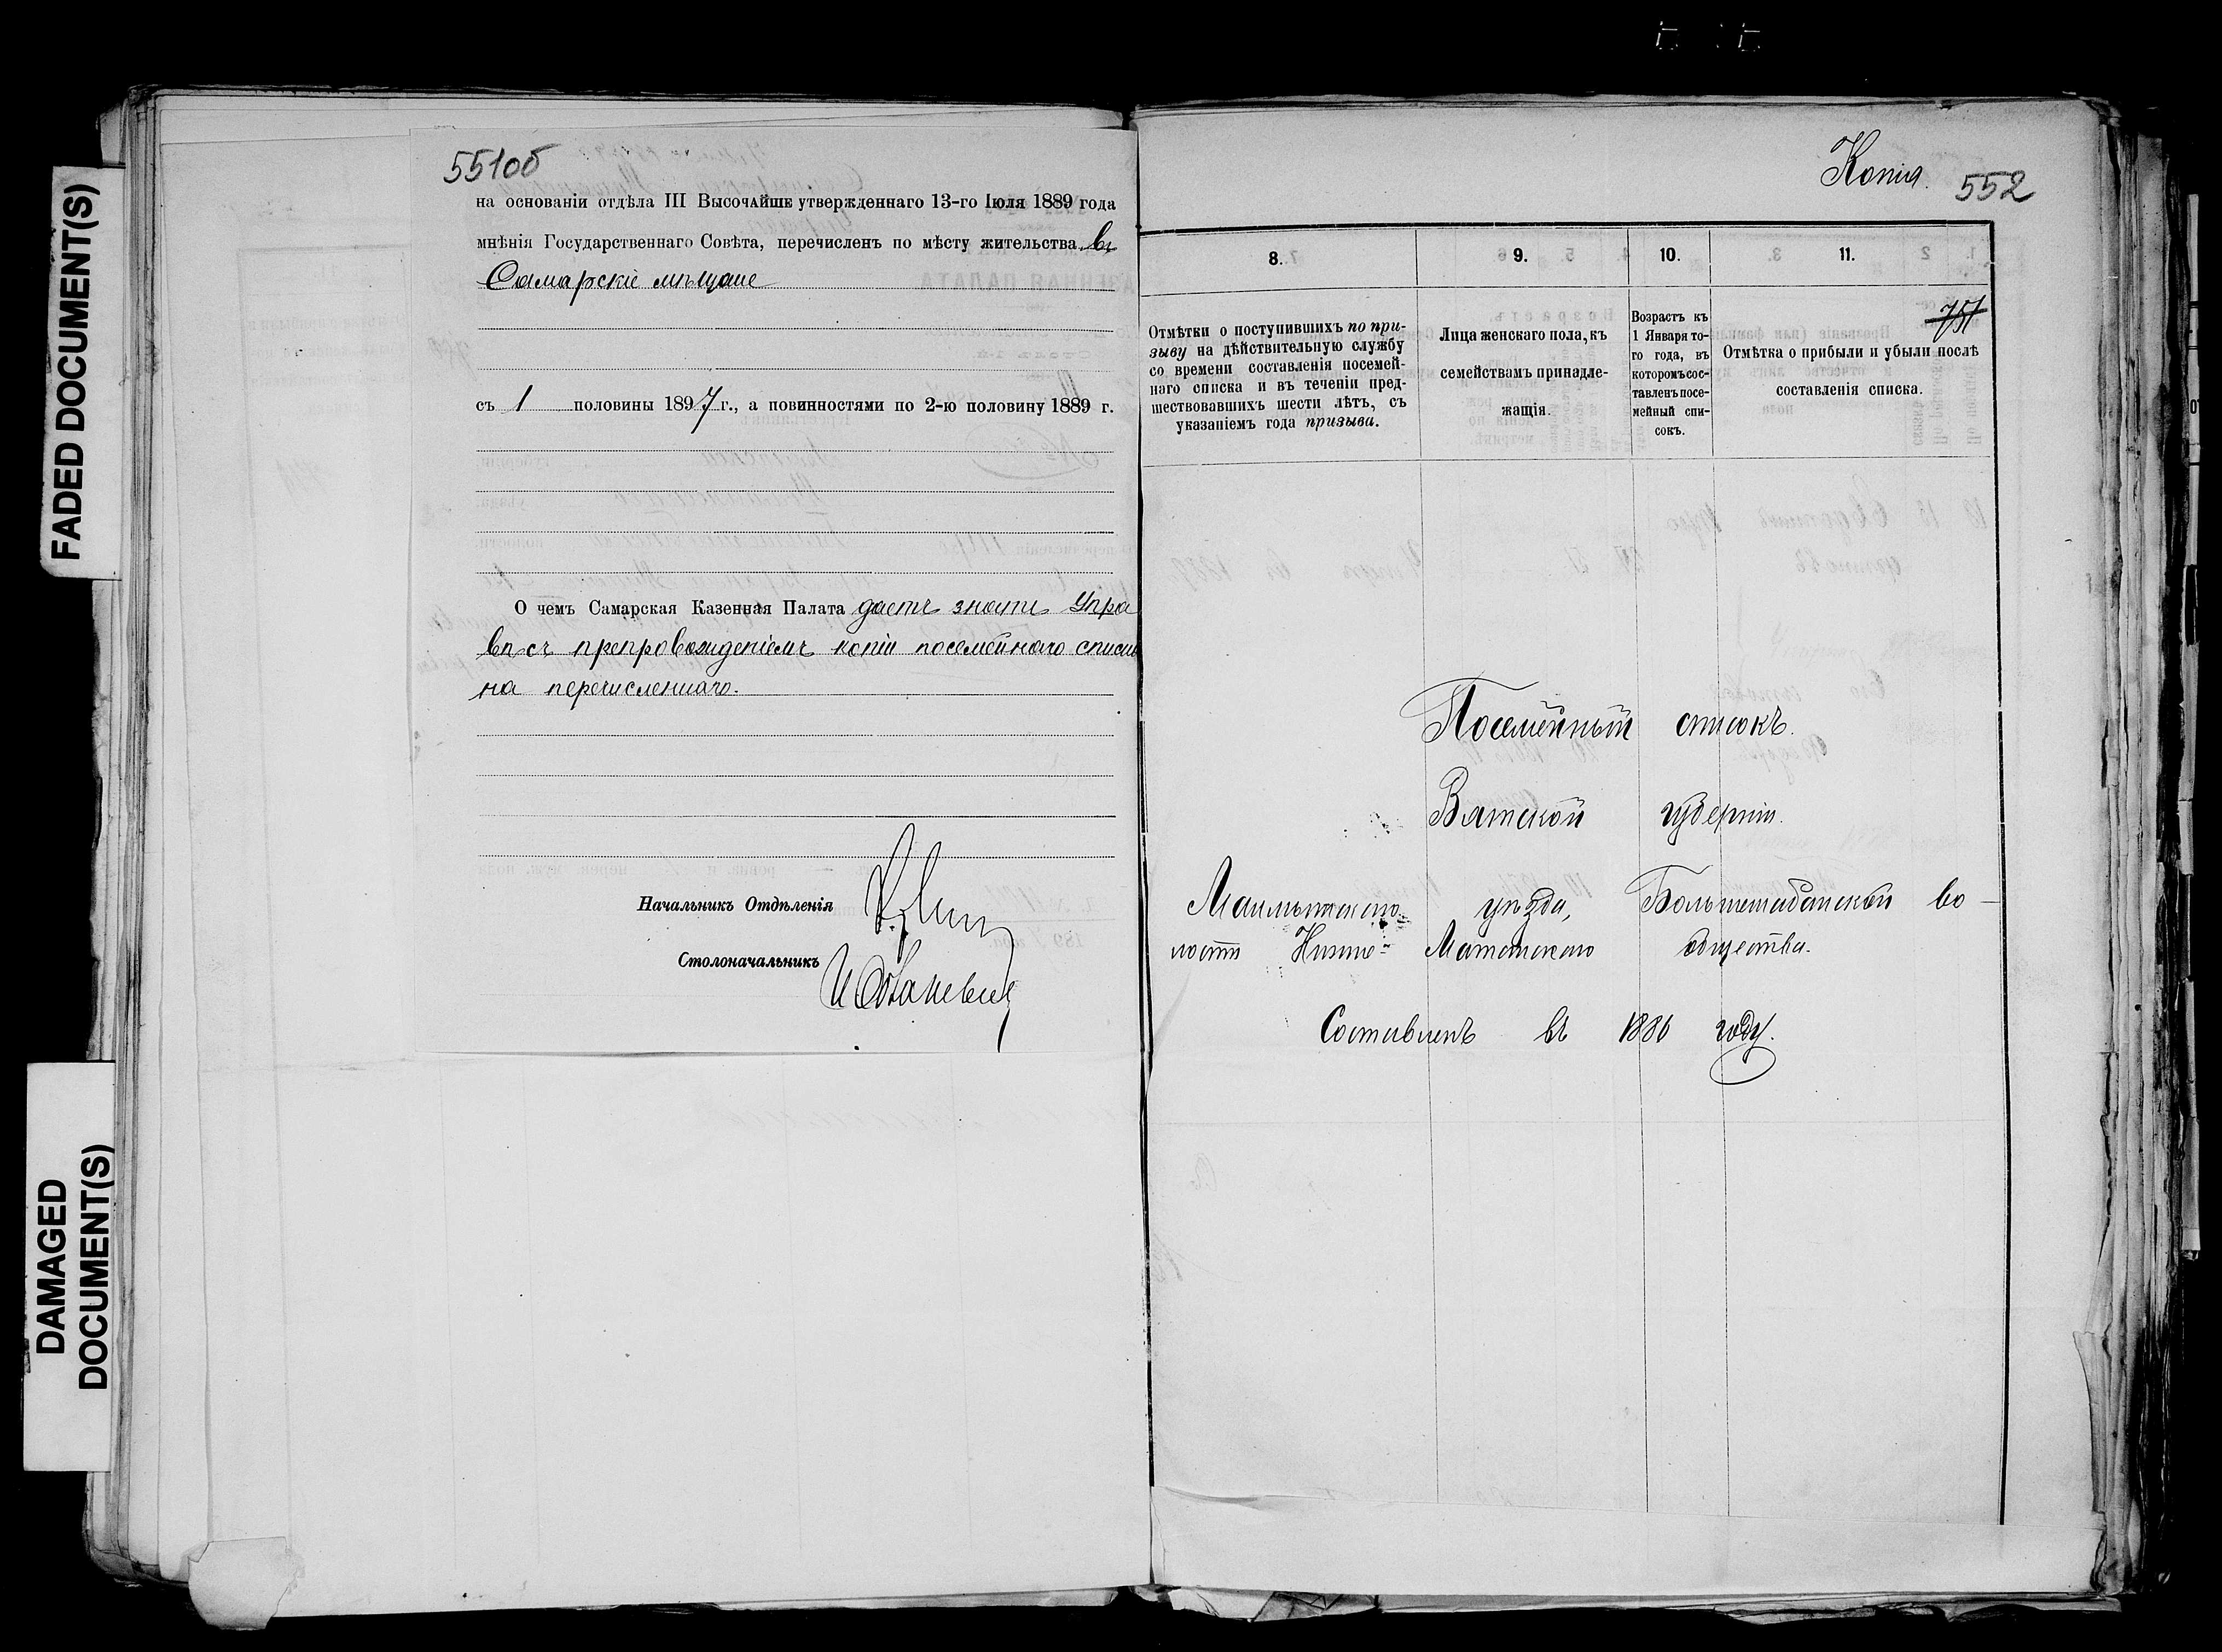 FADED DOCUMENT(S)
DAMAGED
DOCUMENT(S)
551об
на основаніи отдѣла III Высочайше утвержденнаго 13-го Іюля 1889 года
мнѣнія Государственнаго Совѣта, перечисленъ по мѣсту жительства въ
Самарскіе мѣщане
съ 1 половины 1897 г., а повинностями по 2-ю половину 1889 г.
О чемъ Самарская Казенная Палата даетъ знать Упра
вѣ съ препровожденіемъ копіи посемейнаго списка
на перечисленнаго.
Начальникъ Отдѣленія
Столоначальникъ
Копія.
552
8.
9.
10.
11.
751
Отмѣтки о поступившихъ по при-
зыву на дѣйствительную службу
со времени составленія посемей-
наго списка и въ теченіи пред-
шествовавшихъ шести лѣтъ, съ
указаніемъ года призыва.
Лица женскаго пола, къ
семействамъ принадле-
жащія.
Возрастъ къ
1 Января то-
го года, въ
которомъ сос-
тавленъ посе-
мейный спи-
сокъ.
Отмѣтка о прибыли и убыли послѣ
составленія списка.
Посемейный списокъ.
Вятской губерніи.
Малмыжскаго уѣзда, Большешабанской во-
лости Нижне- общества.
Составленъ въ 1886 году.